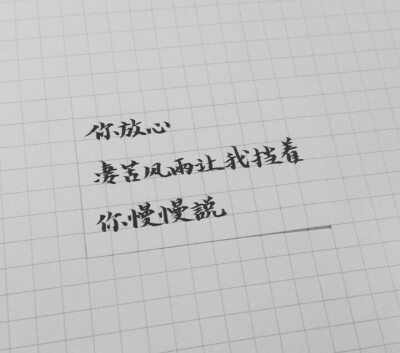 你放心
凄苦风雨让我挡着
你慢慢説